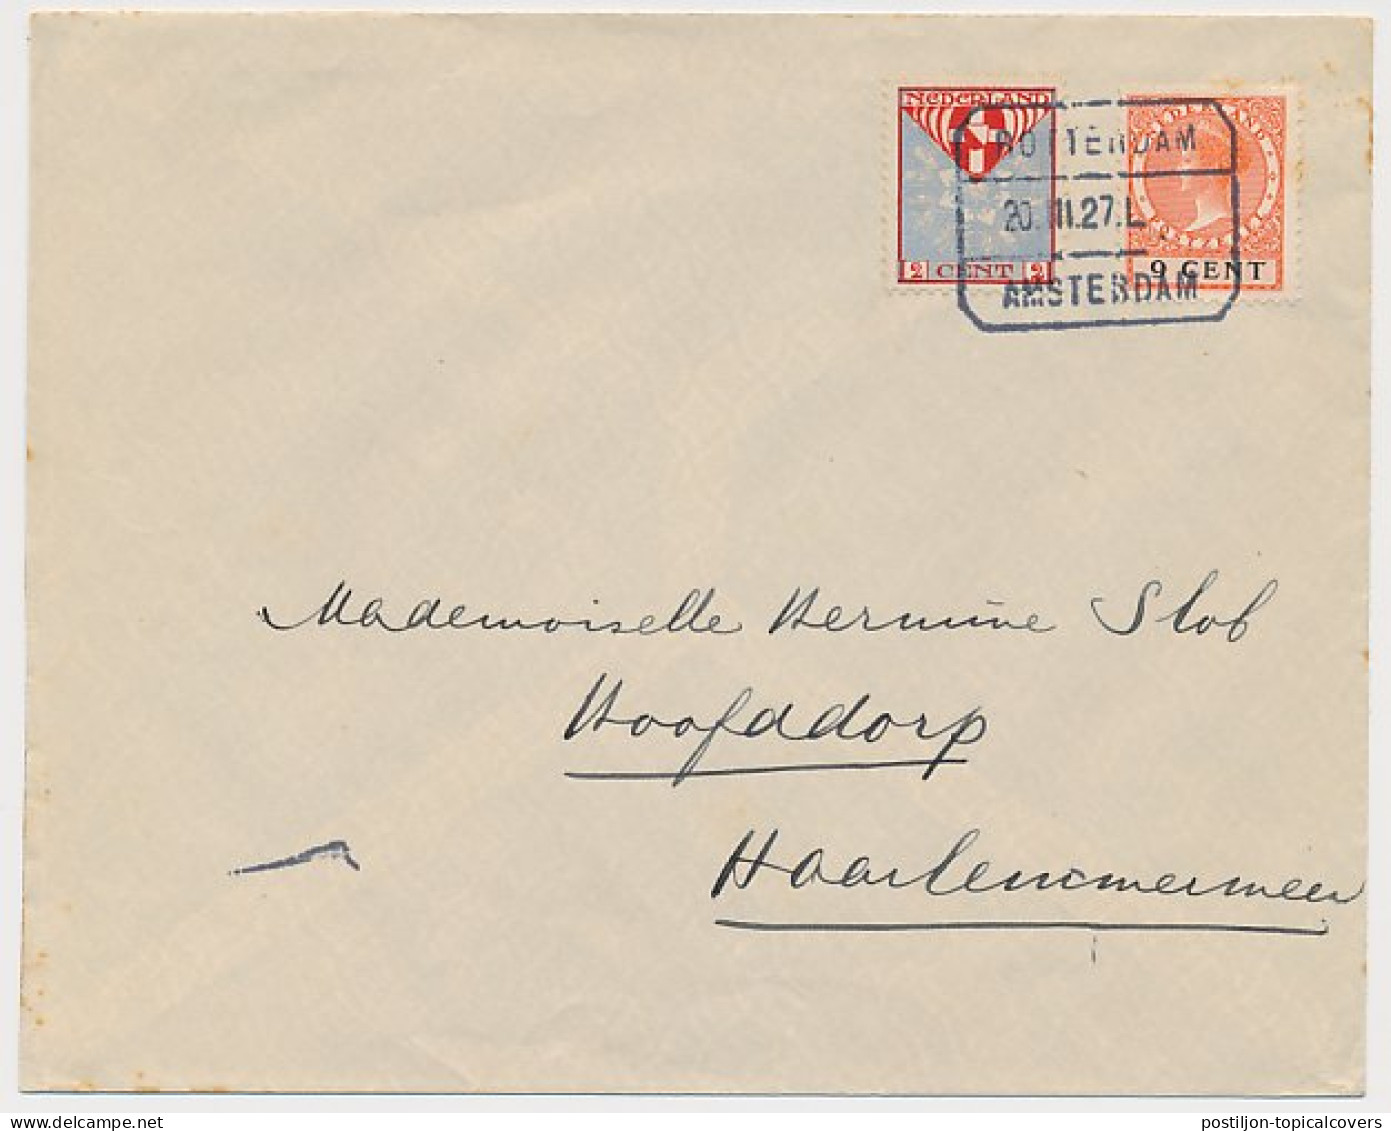 NEDERLAND
2 CENT 2
NEDERLAND
POSTZEGEL
9 CENT
ROTTERDAM
20.III.27.L
AMSTERDAM
Mademoiselle Hermine Slob
Hoofddorp
Haarlemmermeer
postiljon-topicalcovers